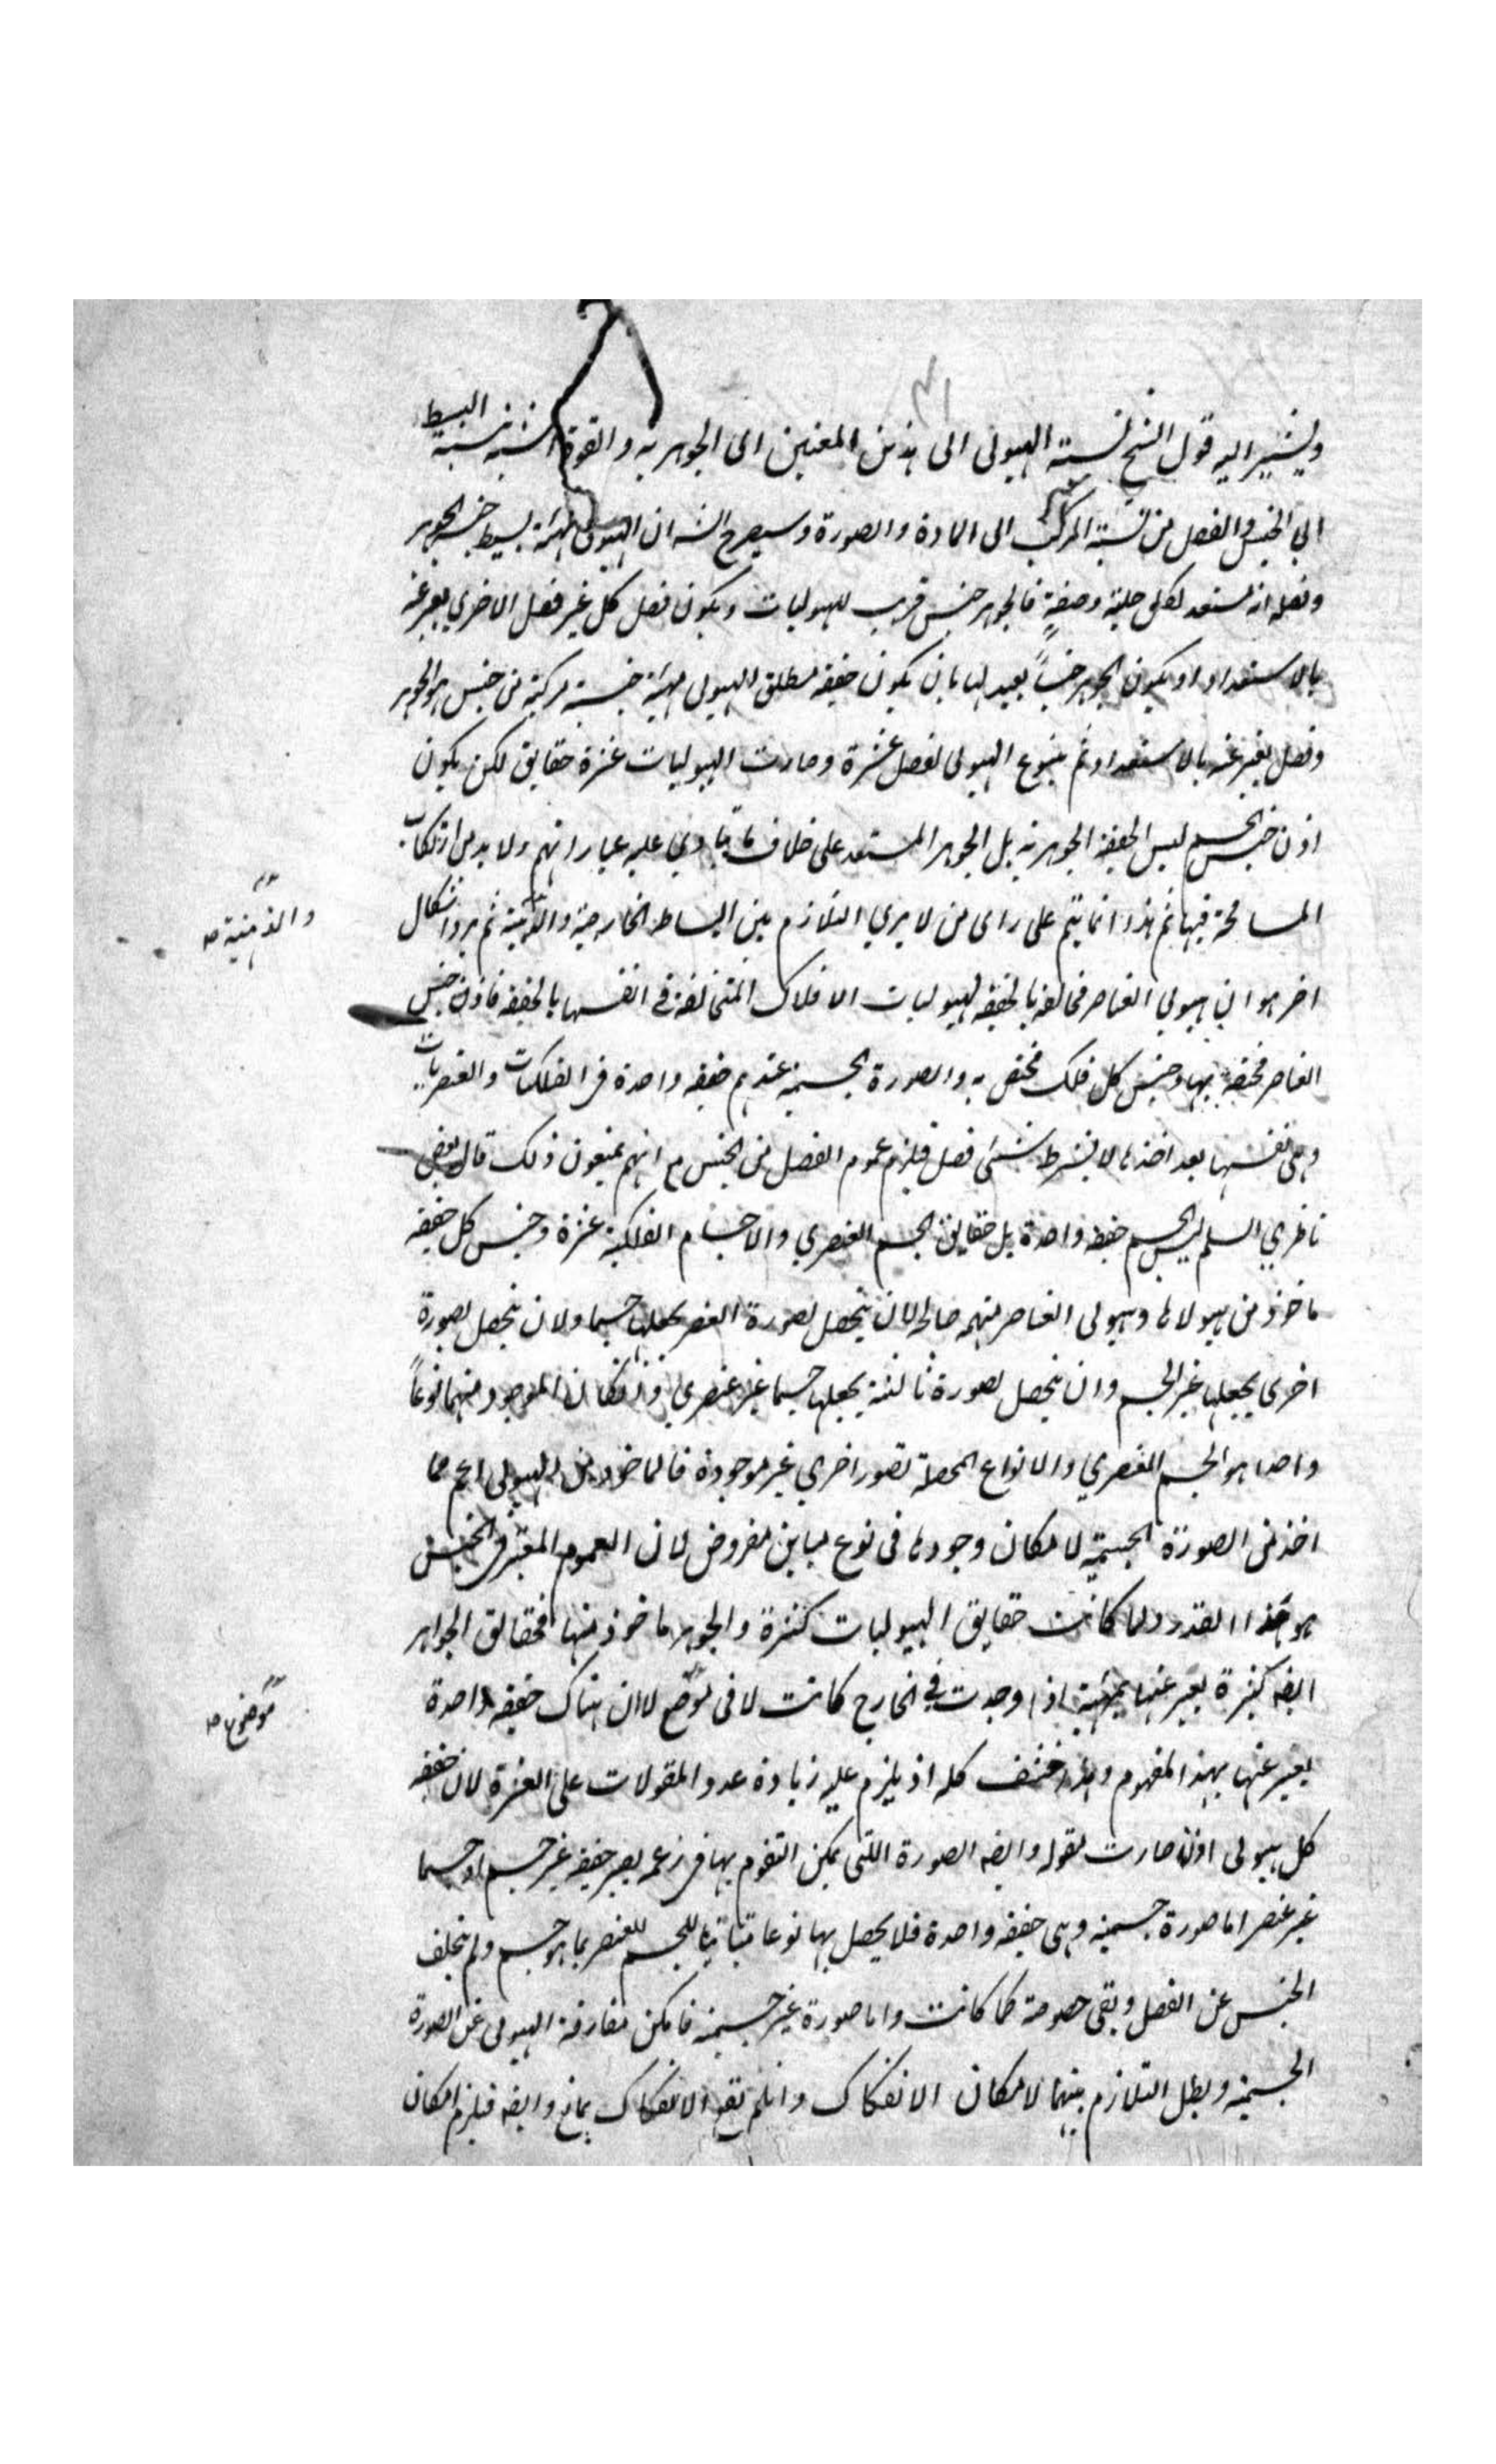 ويشير اليه قول الشيخ نسبة الهيولى الى هذين المعنيين الى الجوهرية والقوة اشبه نسبة البسيط
الى الجنس والفصل من نسبة المركب الى المادة والصورة وسيصرح الش ان الهيولى مهية بسيط جنسه الجوهر
وفصله انه مستعد لكل حلية وصفة فالجوهر جنس قريب للهيوليات ويكون فصل كل غير فصل الاخرى يعبر عنه
بالاستعداد او يكون الجوهر جنساً بعيد لها بان يكون حقيقة مطلق الهيولى مهية جنسية مركبة من جنس هو الجوهر
وفصل يعبر عنه بالاستعداد ثم يتنوع الهيولى بفصل عشرة وصارت الهيوليات عشرة حقايق لكن يكون
اذن جنس الجسم ليس الحقيقة الجوهرية بل الجوهر المستعد على خلاف ما ينادي عليه عباراتهم ولا بد من ارتكاب
المسامحة فيها ثم هذا انما يتم على راى من لا يرى التلازم بين البسايط الخارجية والذهنية ثم يرد اشكال
اخر هو ان هيولى العناصر مخالفة بالحقيقة لهيوليات الافلاك المتخالفة في انفسها بالحقيقة فاذن جنس
العناصر مختصة بها وجنس كل فلك مختص به والصورة الجسمية عندهم حقيقة واحدة في الفلكيات والعنصريات
وهي نفسها بعد اخذها لا بشرط شئ فصل فيلزم عموم الفصل من الجنس مع انهم يمنعون ذلك قال بعض
ناظري السلم ليس الجسم حقيقة واحدة بل حقايق الجسم العنصري والاجسام الفلكية عشرة وجنس كل حقيقة
ماخوذ من هيولاها وهيولى العناصر مبهمة صالحة لان يتحصل بصورة العنصر يجعلها جسما ولان يتحصل بصورة
اخرى يجعلها غير الجسم وان يتحصل بصورة ثالثة يجعلها جسما غير عنصري وان كان الموجود منها نوعاً
واحدا هو الجسم العنصري والانواع المحصلة بصور اخرى غير موجودة فالماخوذ من الهيولى اعم مما
اخذ من الصورة الجسمية لامكان وجودها في نوع مباين مفروض لان العموم المعتبر في الجنس
هو هذا القدر ولما كانت حقايق الهيوليات كثيرة والجوهر ماخوذ منها فحقايق الجواهر
ايضه كثيرة يعبر عنها بمهية اذا وجدت في الخارج كانت لا في موضع لا ان هناك حقيقة واحدة
يعبر عنها بهذا المفهوم وهذا سخيف كله اذ يلزم عليه زيادة عدد المقولات على العشرة لان حقيقة
كل هيولى اذن صارت مقولة وايضه الصورة اللتى يمكن التقوم بها في زعمه بصير حقيقة غير جسم او جسما
غير عنصر اما صورة جسمية وهي حقيقة واحدة فلا يحصل بها نوعا مباينا للجسم العنصر بما هو جسم ولم يتخلف
الجنس عن الفصل وبقى خصوصه كما كانت واما صورة غير جسمية فامكن مفارقة الهيولى عن الصورة
الجسمية وبطل التلازم بينهما لامكان الانفكاك وان لم يقع الانفكاك بمانع وايضه فيلزم امكان
والذهنية صح
موضوع صح